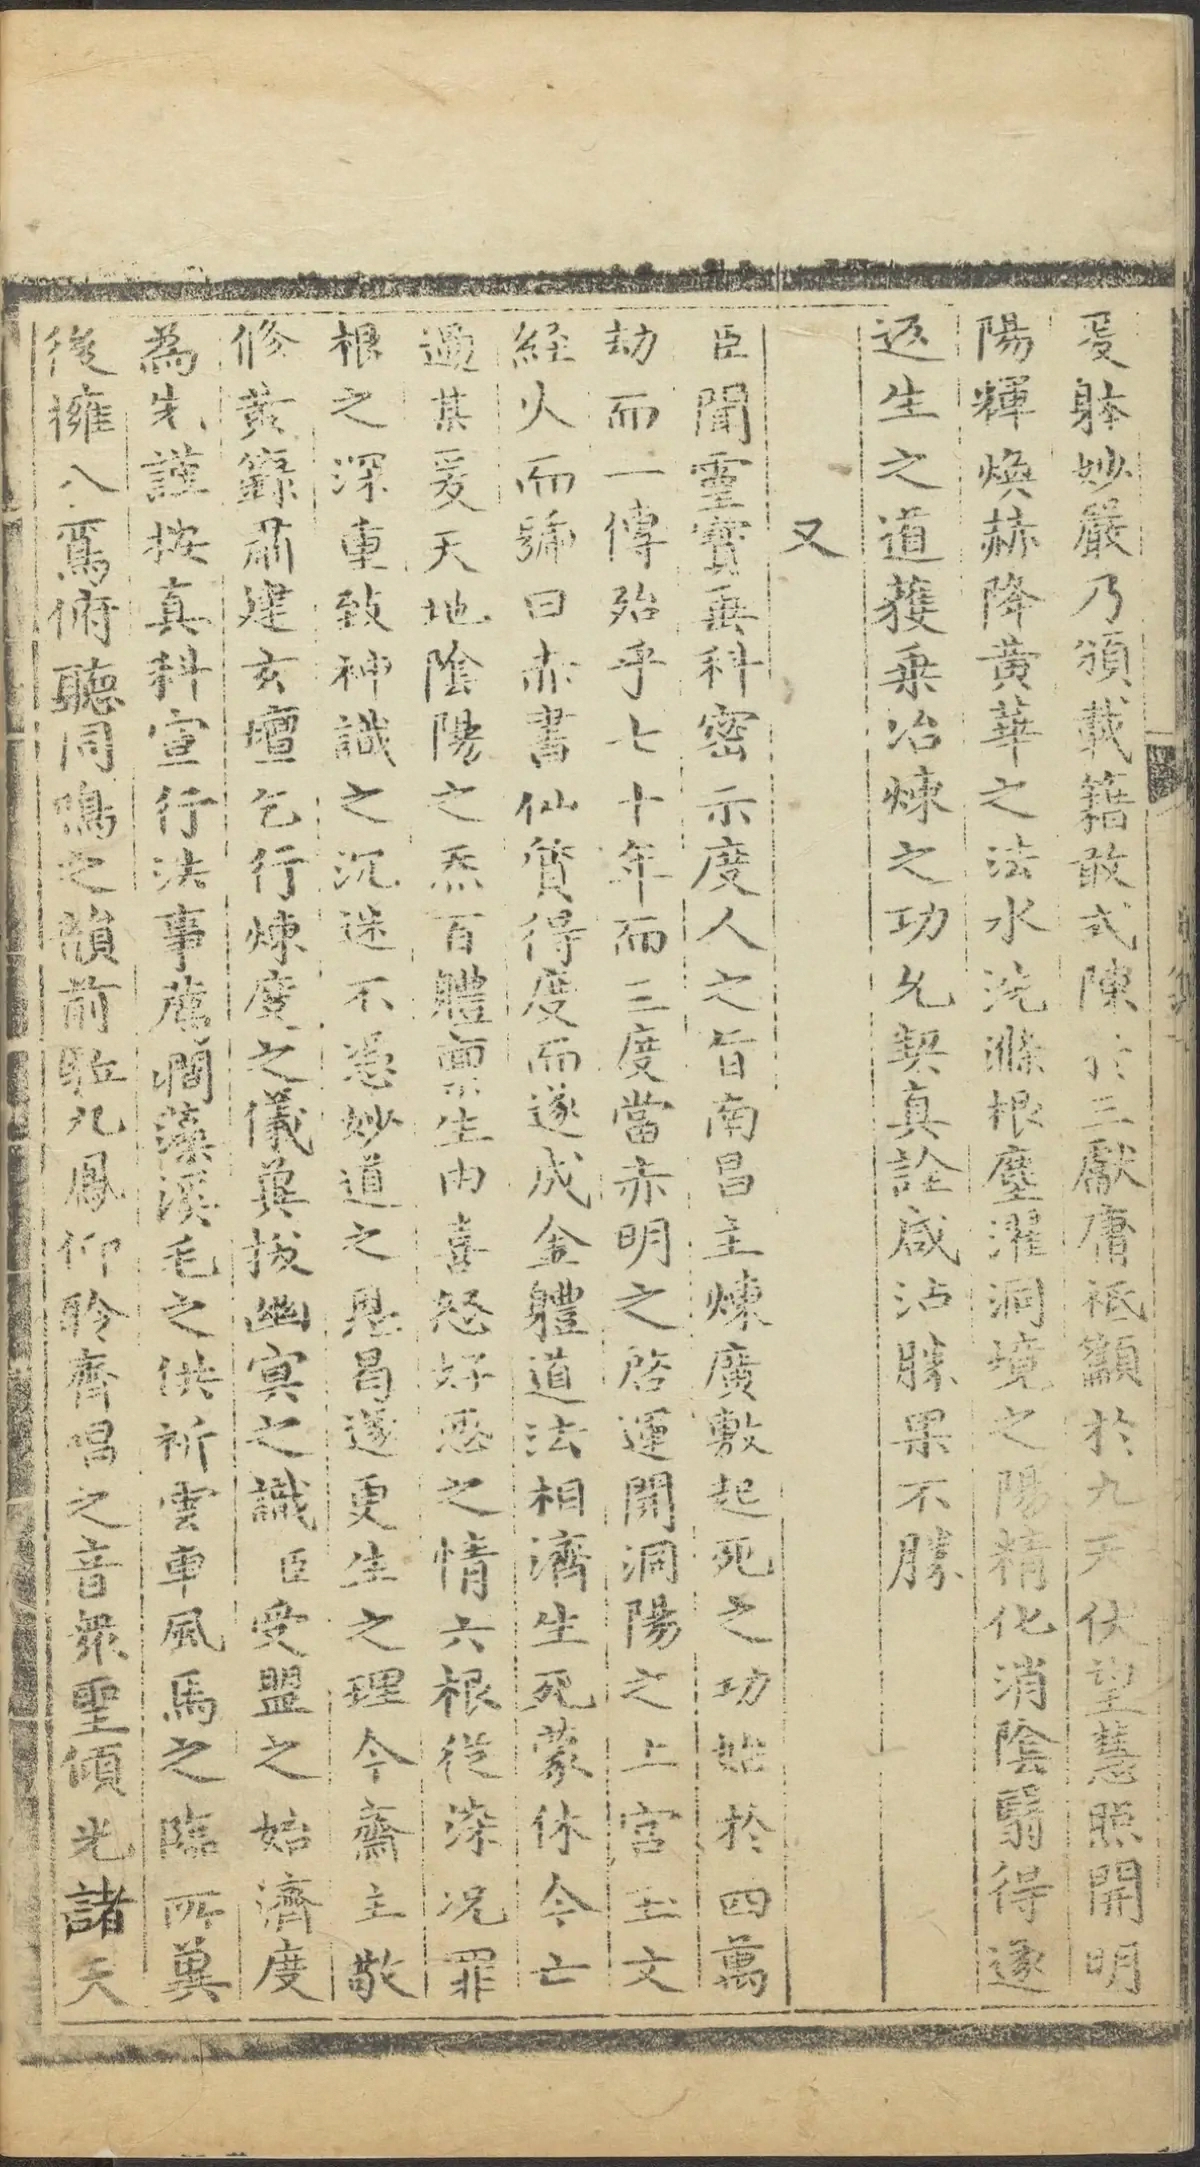 爰躰妙嚴乃頒載籍敢式陳於三獻庸祗籲於九天伏望慧照開明
陽輝煥赫降黃華之法水洗滌根塵濯洞境之陽精化消陰翳得遂
返生之道獲乗冶煉之功允契真詮咸沾勝果不勝
又
臣聞靈寳垂科密示度人之旨南昌主煉廣敷起死之功始於四萬
劫而一傳殆乎七十年而三度當赤明之啓運開洞陽之上宫玉文
經火而號曰赤書仙質得度而遂成金體道法相濟生死蒙休今亡
過某爰天地隂陽之炁百體禀生由喜怒好惡之情六根從染况罪
根之深重致神識之沉迷不憑妙道之恩曷遂更生之理今齋主敬
修黄籙肅建玄壇乞行煉度之儀兾拔幽冥之識臣受盟之始濟度
為先謹按真科宣行法事薦澗藻溪毛之供祈雲車風馬之臨所兾
後擁八鸞俯聽同鳴之韻前驅九鳳仰聆齊唱之音衆聖傾光諸天